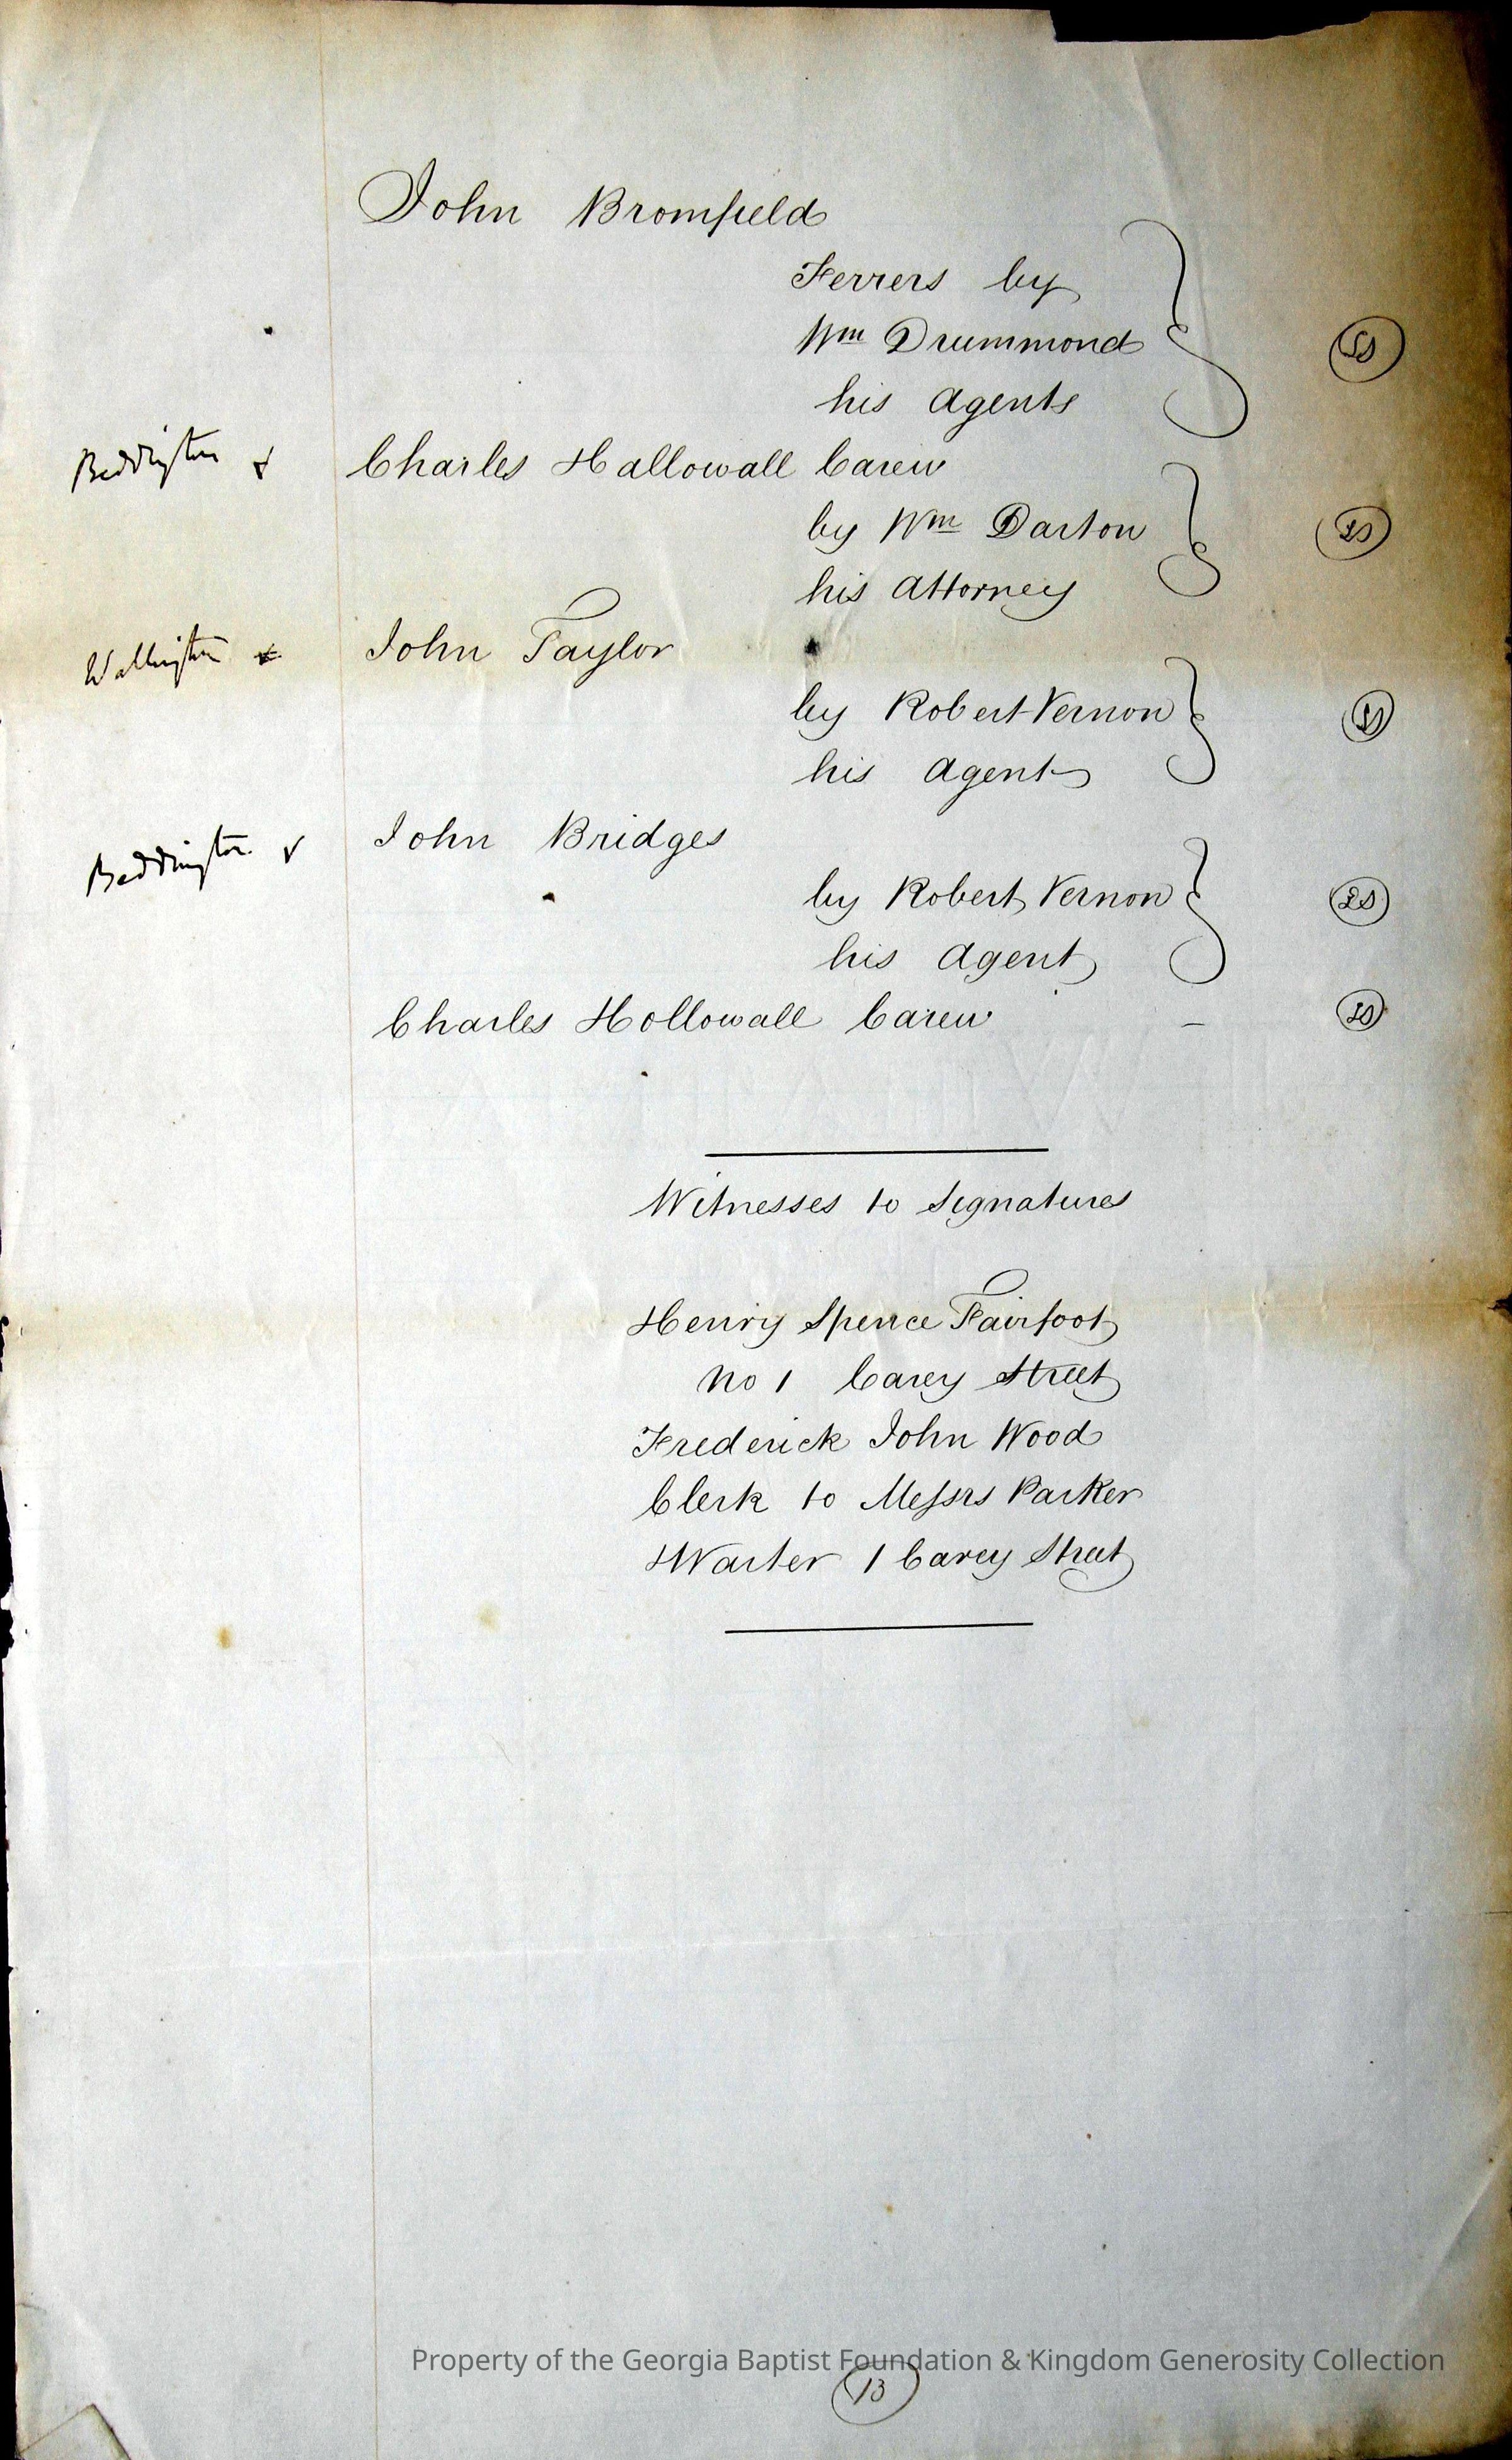 John Bromfield
Ferrers by
Wm Drummond
his Agents
LS
Beddington x Charles Hallowall Carew
by Wm Darton
his Attorney
LS
Wallington x John Taylor
by Robert Vernon
his Agent
LS
Beddington v John Bridges
by Robert Vernon
his Agent
LS
Charles Hollowall Carew – LS
Witnesses to Signatures
Henry Spence Fairfoot
No 1 Carey Street
Frederick John Wood
Clerk to Messrs Parker
HWarter 1 Carey Street
Property of the Georgia Baptist Foundation & Kingdom Generosity Collection
13